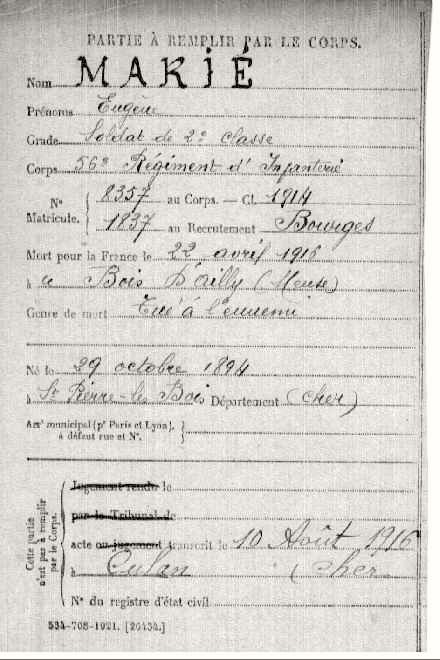 PARTIE À REMPLIR PAR LE CORPS.
Nom MARIÉ
Prénoms Eugène
Grade Soldat de 2e classe
Corps 56e Régiment d'Infanterie
N° Matricule. { 8357 au Corps. — Cl. 1914
1837 au Recrutement Bourges
Mort pour la France le 22 avril 1915
à au Bois d'Ailly (Meuse)
Genre de mort Tué à l'ennemi
Né le 29 octobre 1894
à St Pierre-les-Bois Département (Cher)
Arrt municipal (pr Paris et Lyon), à défaut rue et N°. }
Cette partie n'est pas à remplir par le Corps.
Jugement rendu le
par le Tribunal de
acte ou jugement transcrit le 10 Août 1916
à Culan (Cher
N° du registre d'état civil
534-708-1921. [26434.]